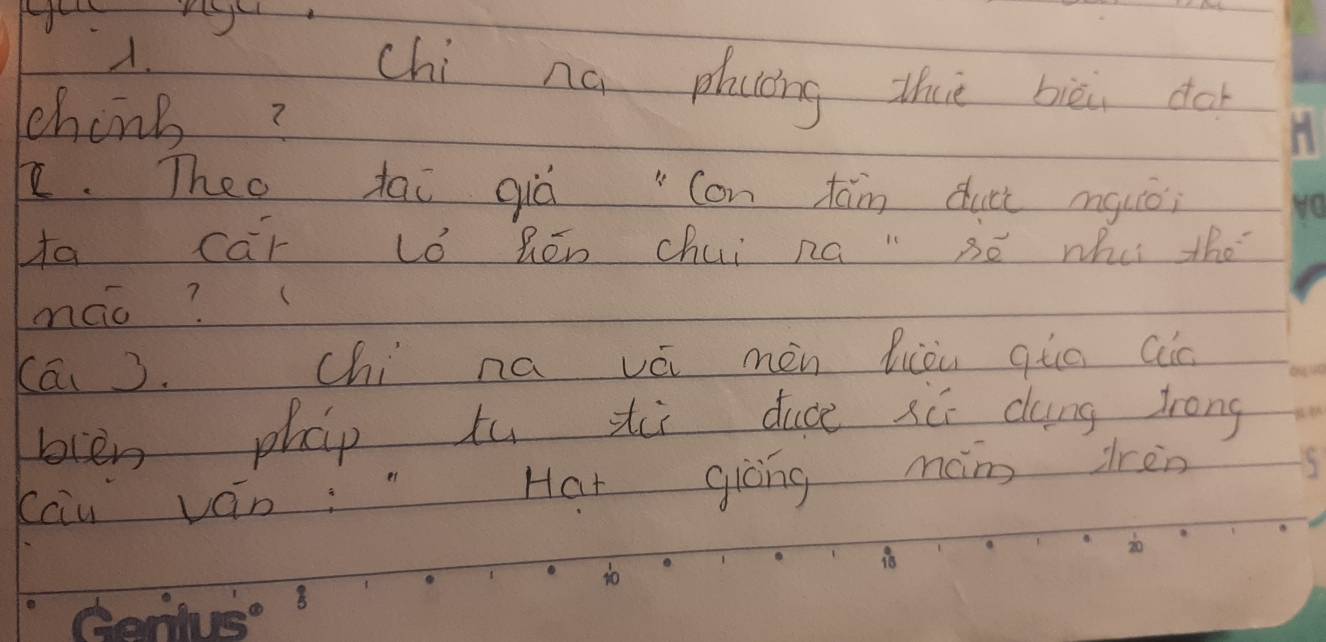 1. Chỉ ra phương thức biểu đạt
chính ?
2. Theo tác giả "Con tằm được người
ta cắt lỗ kén chui ra" sẽ như thế
nào ?
Câu 3. Chỉ ra và nên hiệu quả của
biện pháp tu từ được sử dụng trong
câu văn : " Hạt giống nằm trên
5 10 15 20
Genius
H